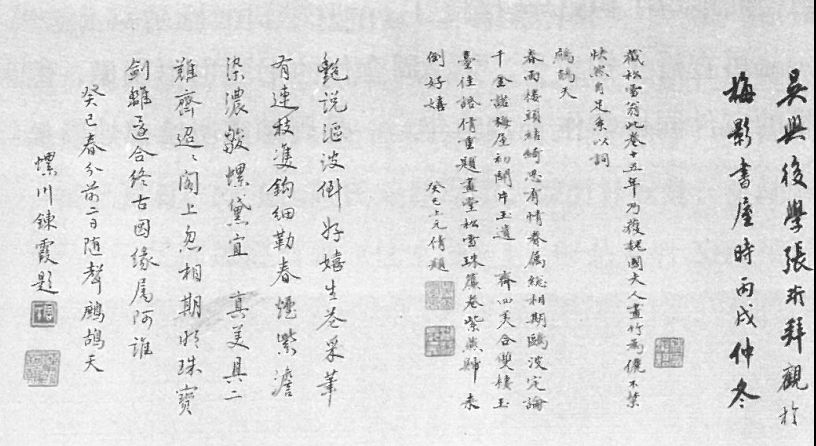 吳興後學張珩拜觀於
梅影書屋時丙戌仲冬
藏松雪翁此卷十五年乃獲魏國夫人畫竹為儷不禁
快然自足系以詞
鷓鴣天
春雨樓頭緒綺思有情眷屬總相期鷗波定論
千金諾梅屋初開片玉遺 齊四美合雙棲玉
臺佳話倩重題畫堂松雪珠簾卷紫燕歸來
倒好嬉 癸巳上元倩題
艷說漚波倒好嬉生花采筆
有連枝雙鈎細勒春煙紫澹
染濃皴螺黛宜 真美具二
難齊迢〻閣上忽相期明珠寶
劍離還合終古因緣屬阿誰
癸巳春分前二日隨聲鷓鴣天
螺川鍊霞題